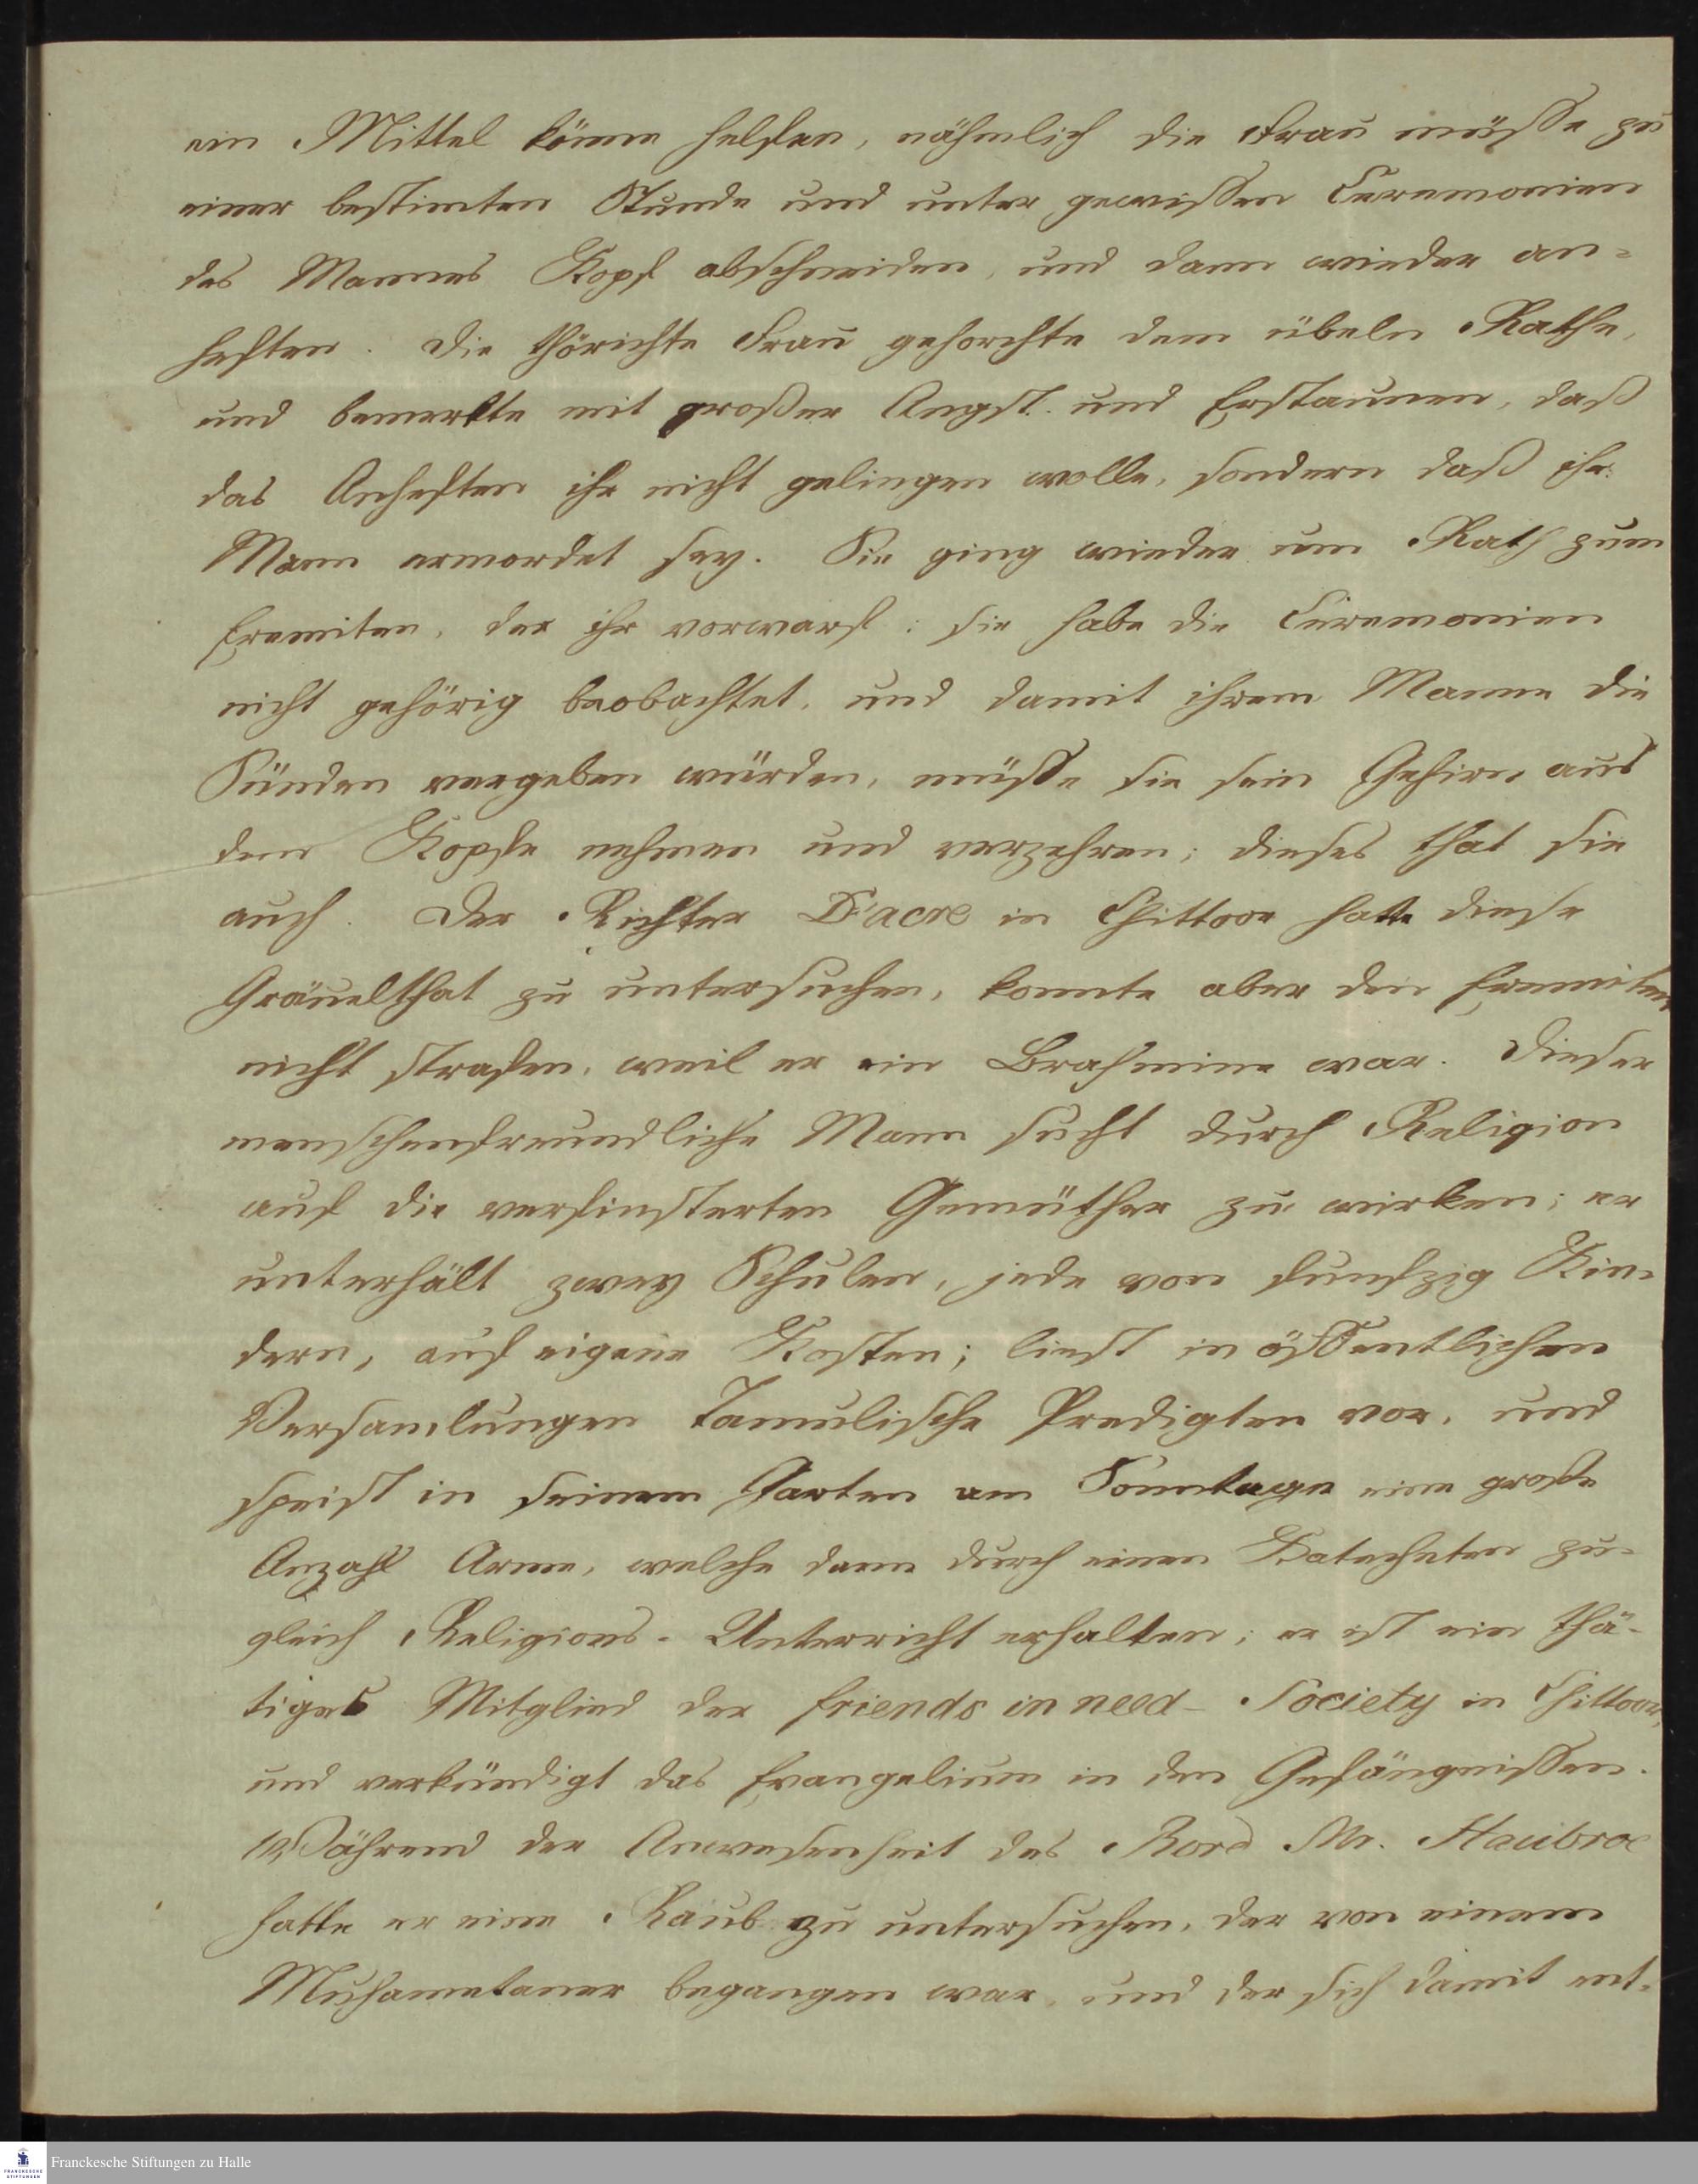 ein Mittel könne helfen, nähmlich die Frau müsse zu
einer bestimten Stunde und unter gewissen Ceremonien
des Mannes Kopf abschneiden, und dann wieder an-
heften. Die thörichte Frau gehorchte dem übeln Rathe,
und bemerkte mit großer Angst und Erstaunen, daß
das Anheften ihr nicht gelingen wolle, sondern daß ihr
Mann ermordet sey. Sie ging wieder um Rath zum
Eremiten, der ihr vorwarf: sie habe die Ceremonien
nicht gehörig beobachtet, und damit ihrem Manne die
Sünden vergeben würden, müsse sie sein Gehirn aus
dem Kopfe nehmen und verzehren; dieses that sie
auch. Der Richter D'acre in Chittoor hatte diese
Gräuelthat zu untersuchen, konnte aber den Eremiten
nicht strafen, weil er ein Brahmine war. Dieser
menschenfreundliche Mann sucht durch Religion
auf die verfinsterten Gemüther zu wirken; er
unterhält zwey Schulen, jede von funfzig Kin-
dern, auf eigene Kosten; liest in öffentlichen
Versamlungen Tamulische Predigten vor, und
speist in seinem Garten am Sonntage eine große
Anzahl Arme, welche dann durch einen Katecheten zu-
gleich Religions-Unterricht erhalten; er ist ein thä-
tiges Mitglied der friends in need-Society in Chittoor,
und verkündigt das Evangelium in den Gefängnissen.
Während der Anwesenheit des Rev'd Mr. Haubroe
hatte er eine Raub zu untersuchen, der von einem
Muhametaner begangen war, und der sich damit ent-
Franckesche Stiftungen zu Halle
FRANCKESCHE
STIFTUNGEN